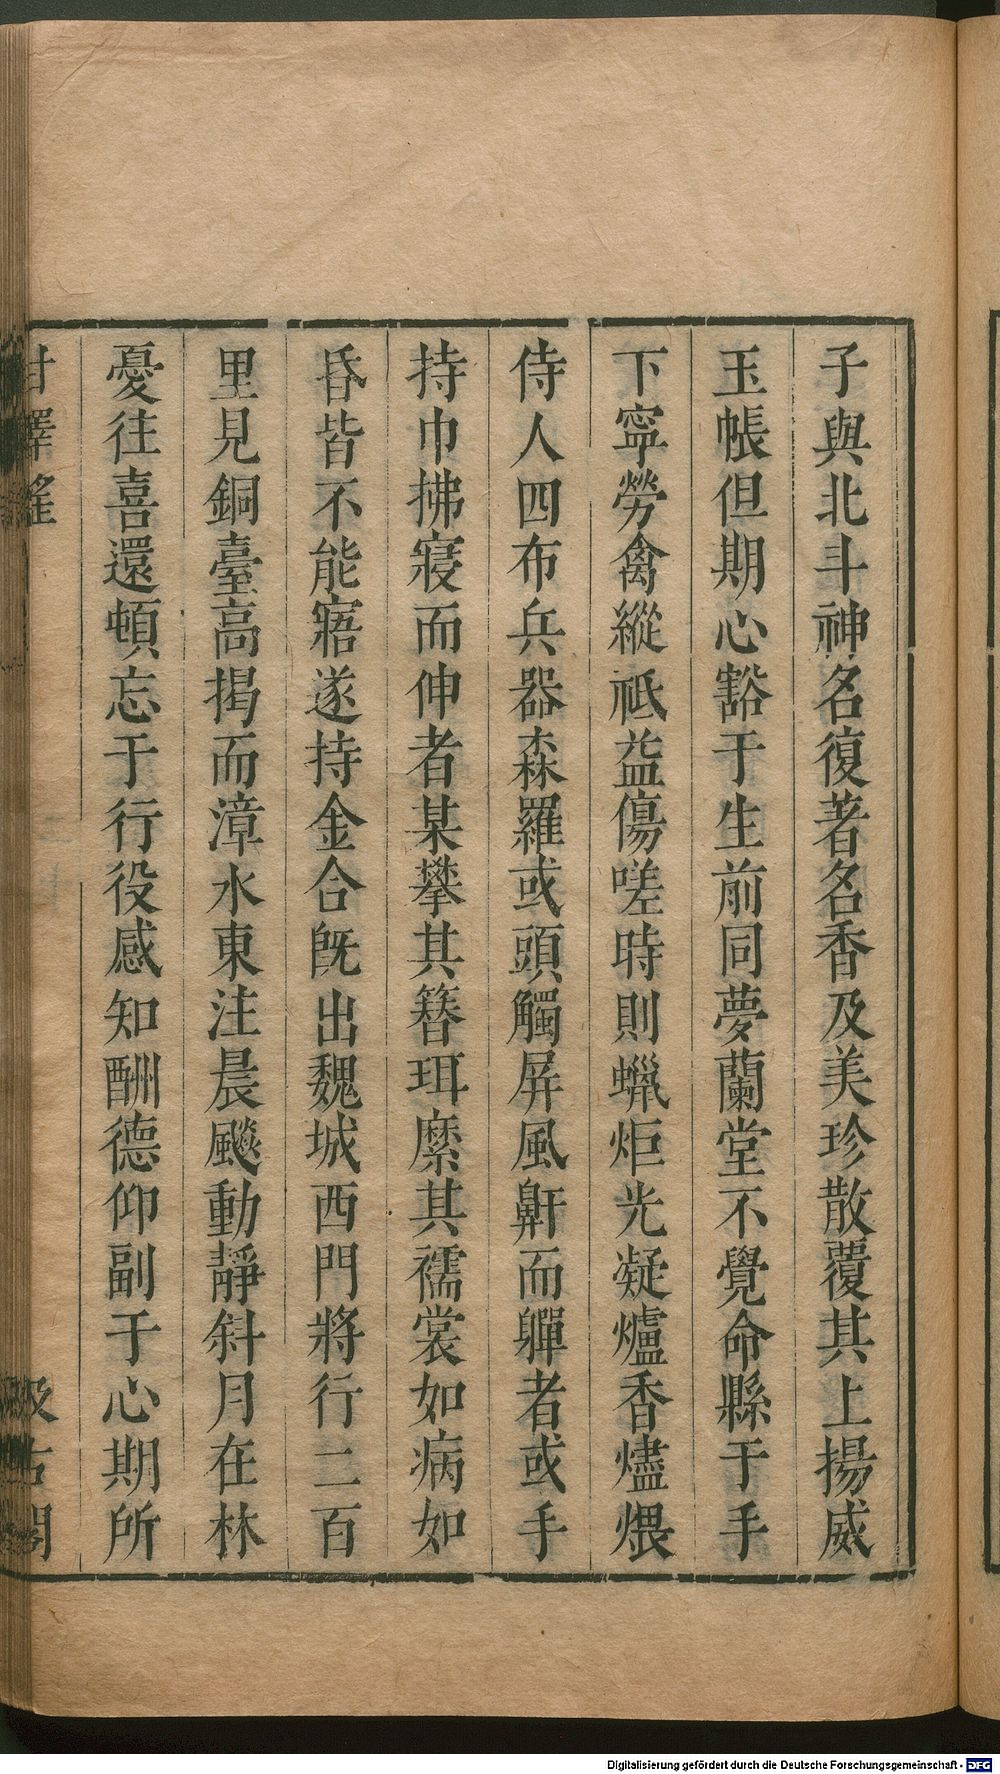 子與北斗神名復著名香及美珍散覆其上揚威
玉帳但期心豁于生前同夢蘭堂不覺命縣于手
下寧勞禽縱祗益傷嗟時則蠟炬光凝爐香燼煨
侍人四布兵器森羅或頭觸屏風鼾而軃者或手
持巾拂寢而伸者某攀其簪珥縻其襦裳如病如
昏皆不能寤遂持金合旣出魏城西門將行二百
里見銅臺高揭而漳水東注晨飈動靜斜月在林
憂往喜還頓忘于行役感知酬德仰副于心期所
甘澤謠
汲古閣
Digitalisierung gefördert durch die Deutsche Forschungsgemeinschaft - DFG